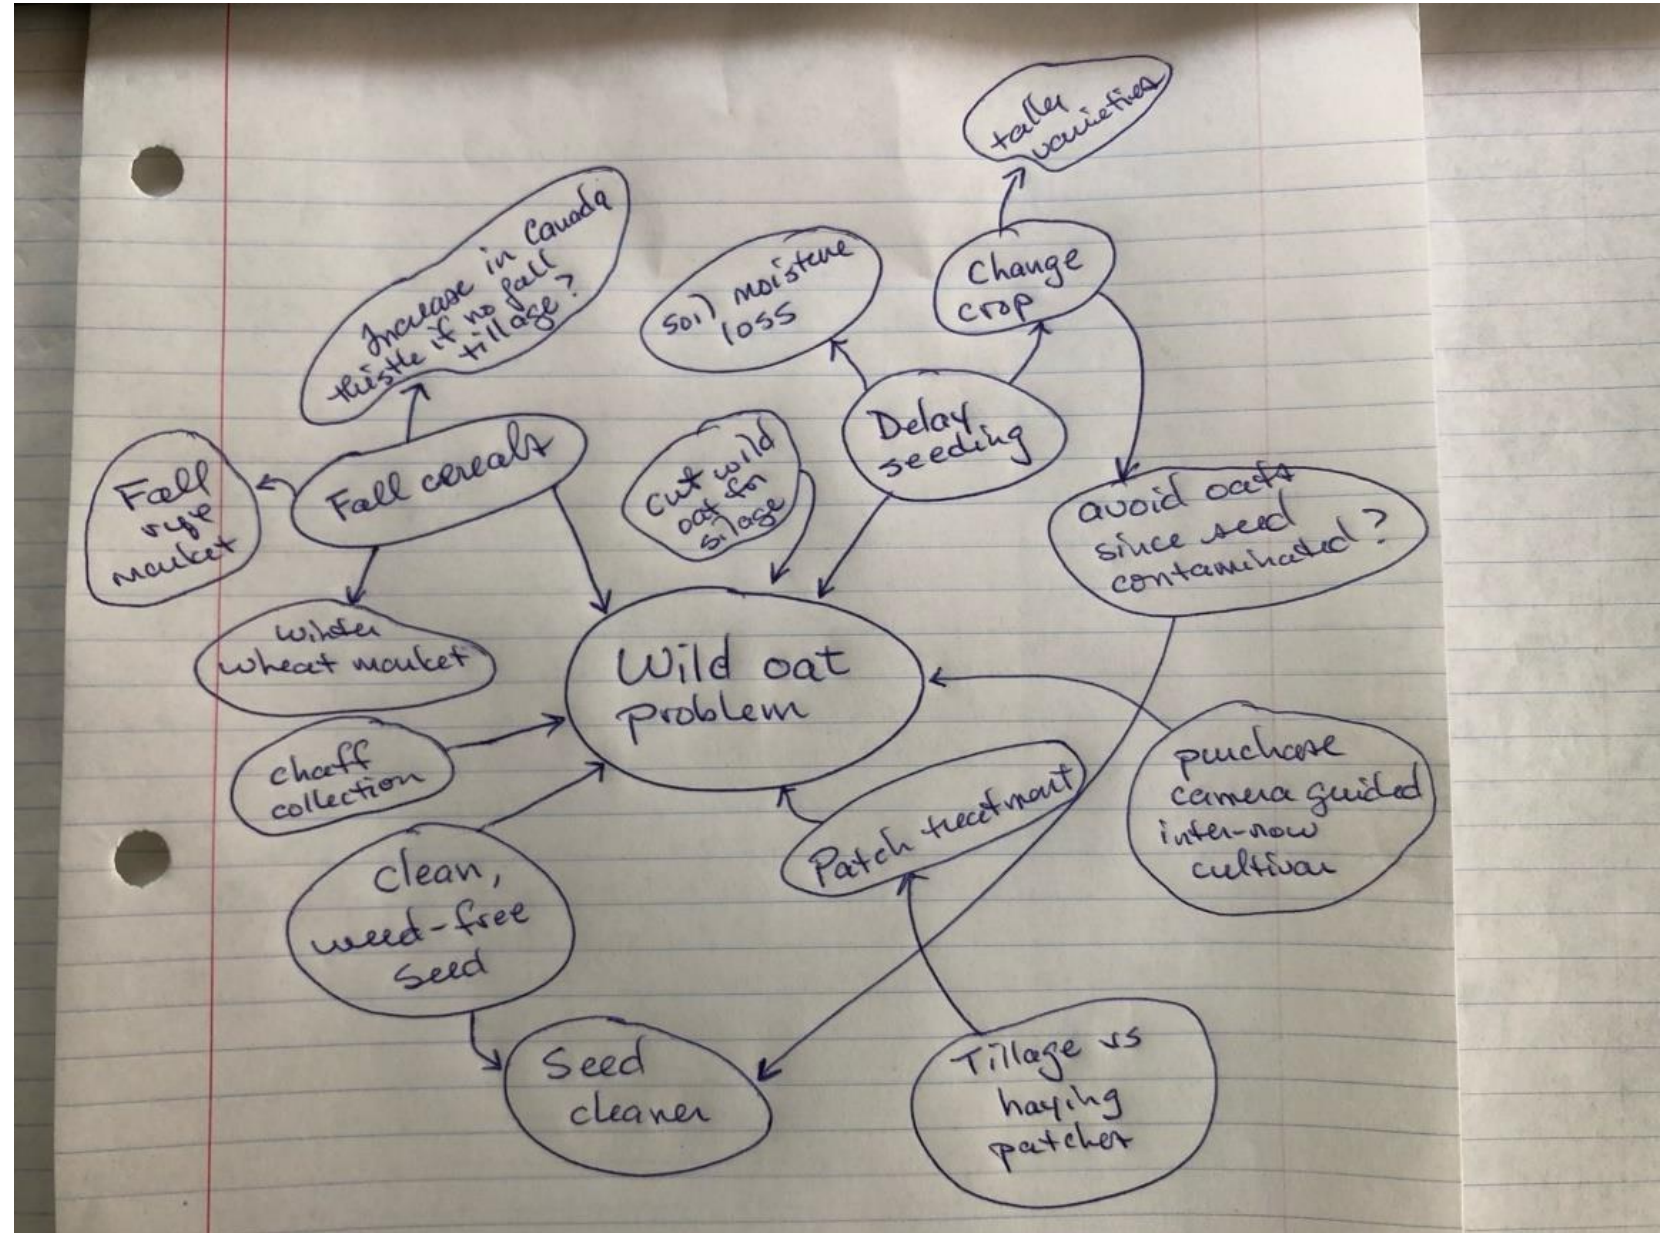 taller
varieties
Increase in Canada
thistle if no fall
tillage?
soil moisture
loss
Change
crop
Delay
seeding
Fall cereals
cut wild
oat for
silage
Fall
rye
market
avoid oats
since seed
contaminated?
winter
wheat market
Wild oat
problem
chaff
collection
purchase
camera guided
inter-row
cultivar
Patch treatment
clean,
weed-free
seed
Seed
cleaner
Tillage vs
haying
patches